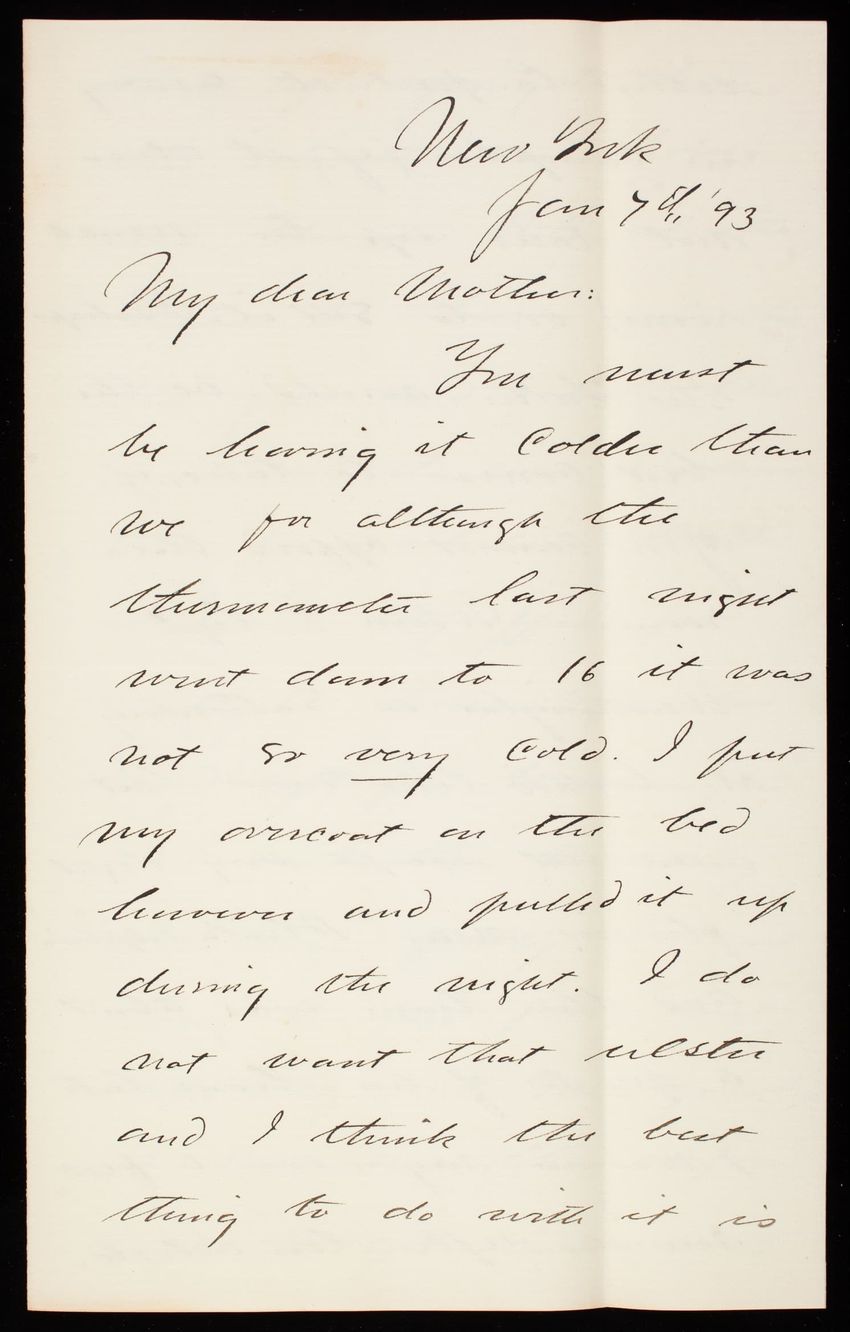 New York
Jan 7th '93
My dear Mother:
You must
be having it Colder than
we for although the
thermometer last night
went down to 16 it was
not so very Cold. I put
my overcoat on the bed
however and pulled it up
during the night. I do
not want that ulster
and I think the best
thing to do with it is